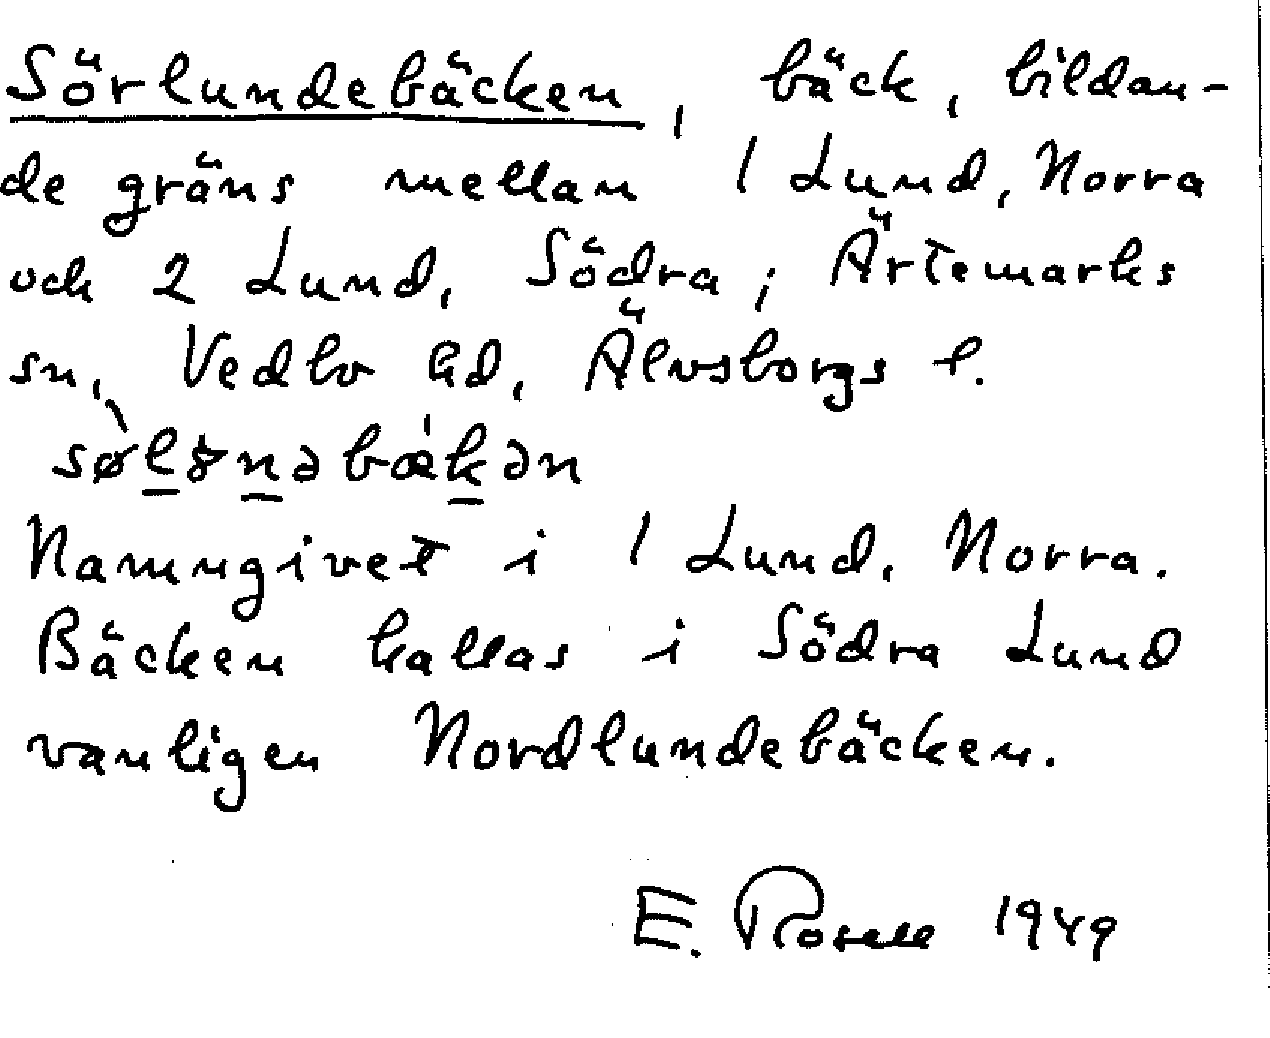 Sörlundebäcken, bäck, bildan-
de gräns mellan 1 Lund, Norra
och 2 Lund, Södra i Ärtemarks
sn, Vedbo hd, Älvsborgs l.
Namngivet i 1 Lund, Norra.
Bäcken kallas i Södra Lund
vanligen Nordlundebäcken.
E. Rosell 1949